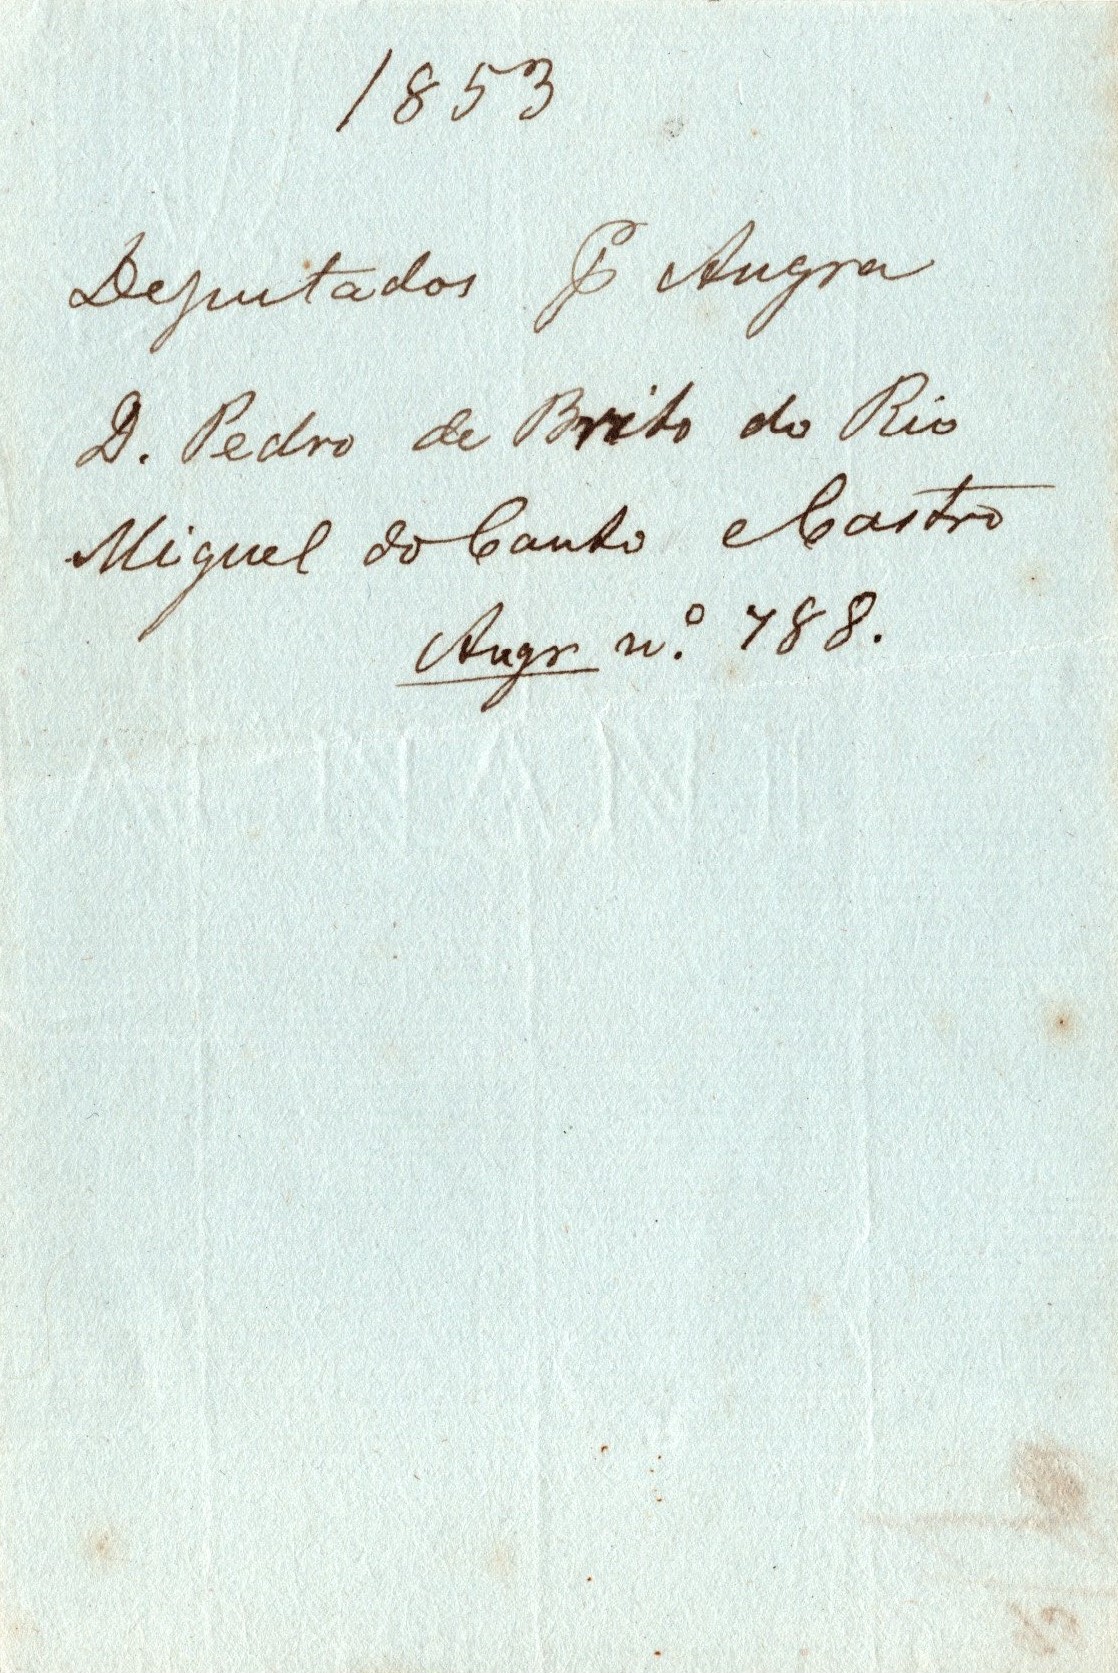 1853
Deputados P Angra
D. Pedro de Brito do Rio
Miguel do Canto e Castro
Angr n.º 788.